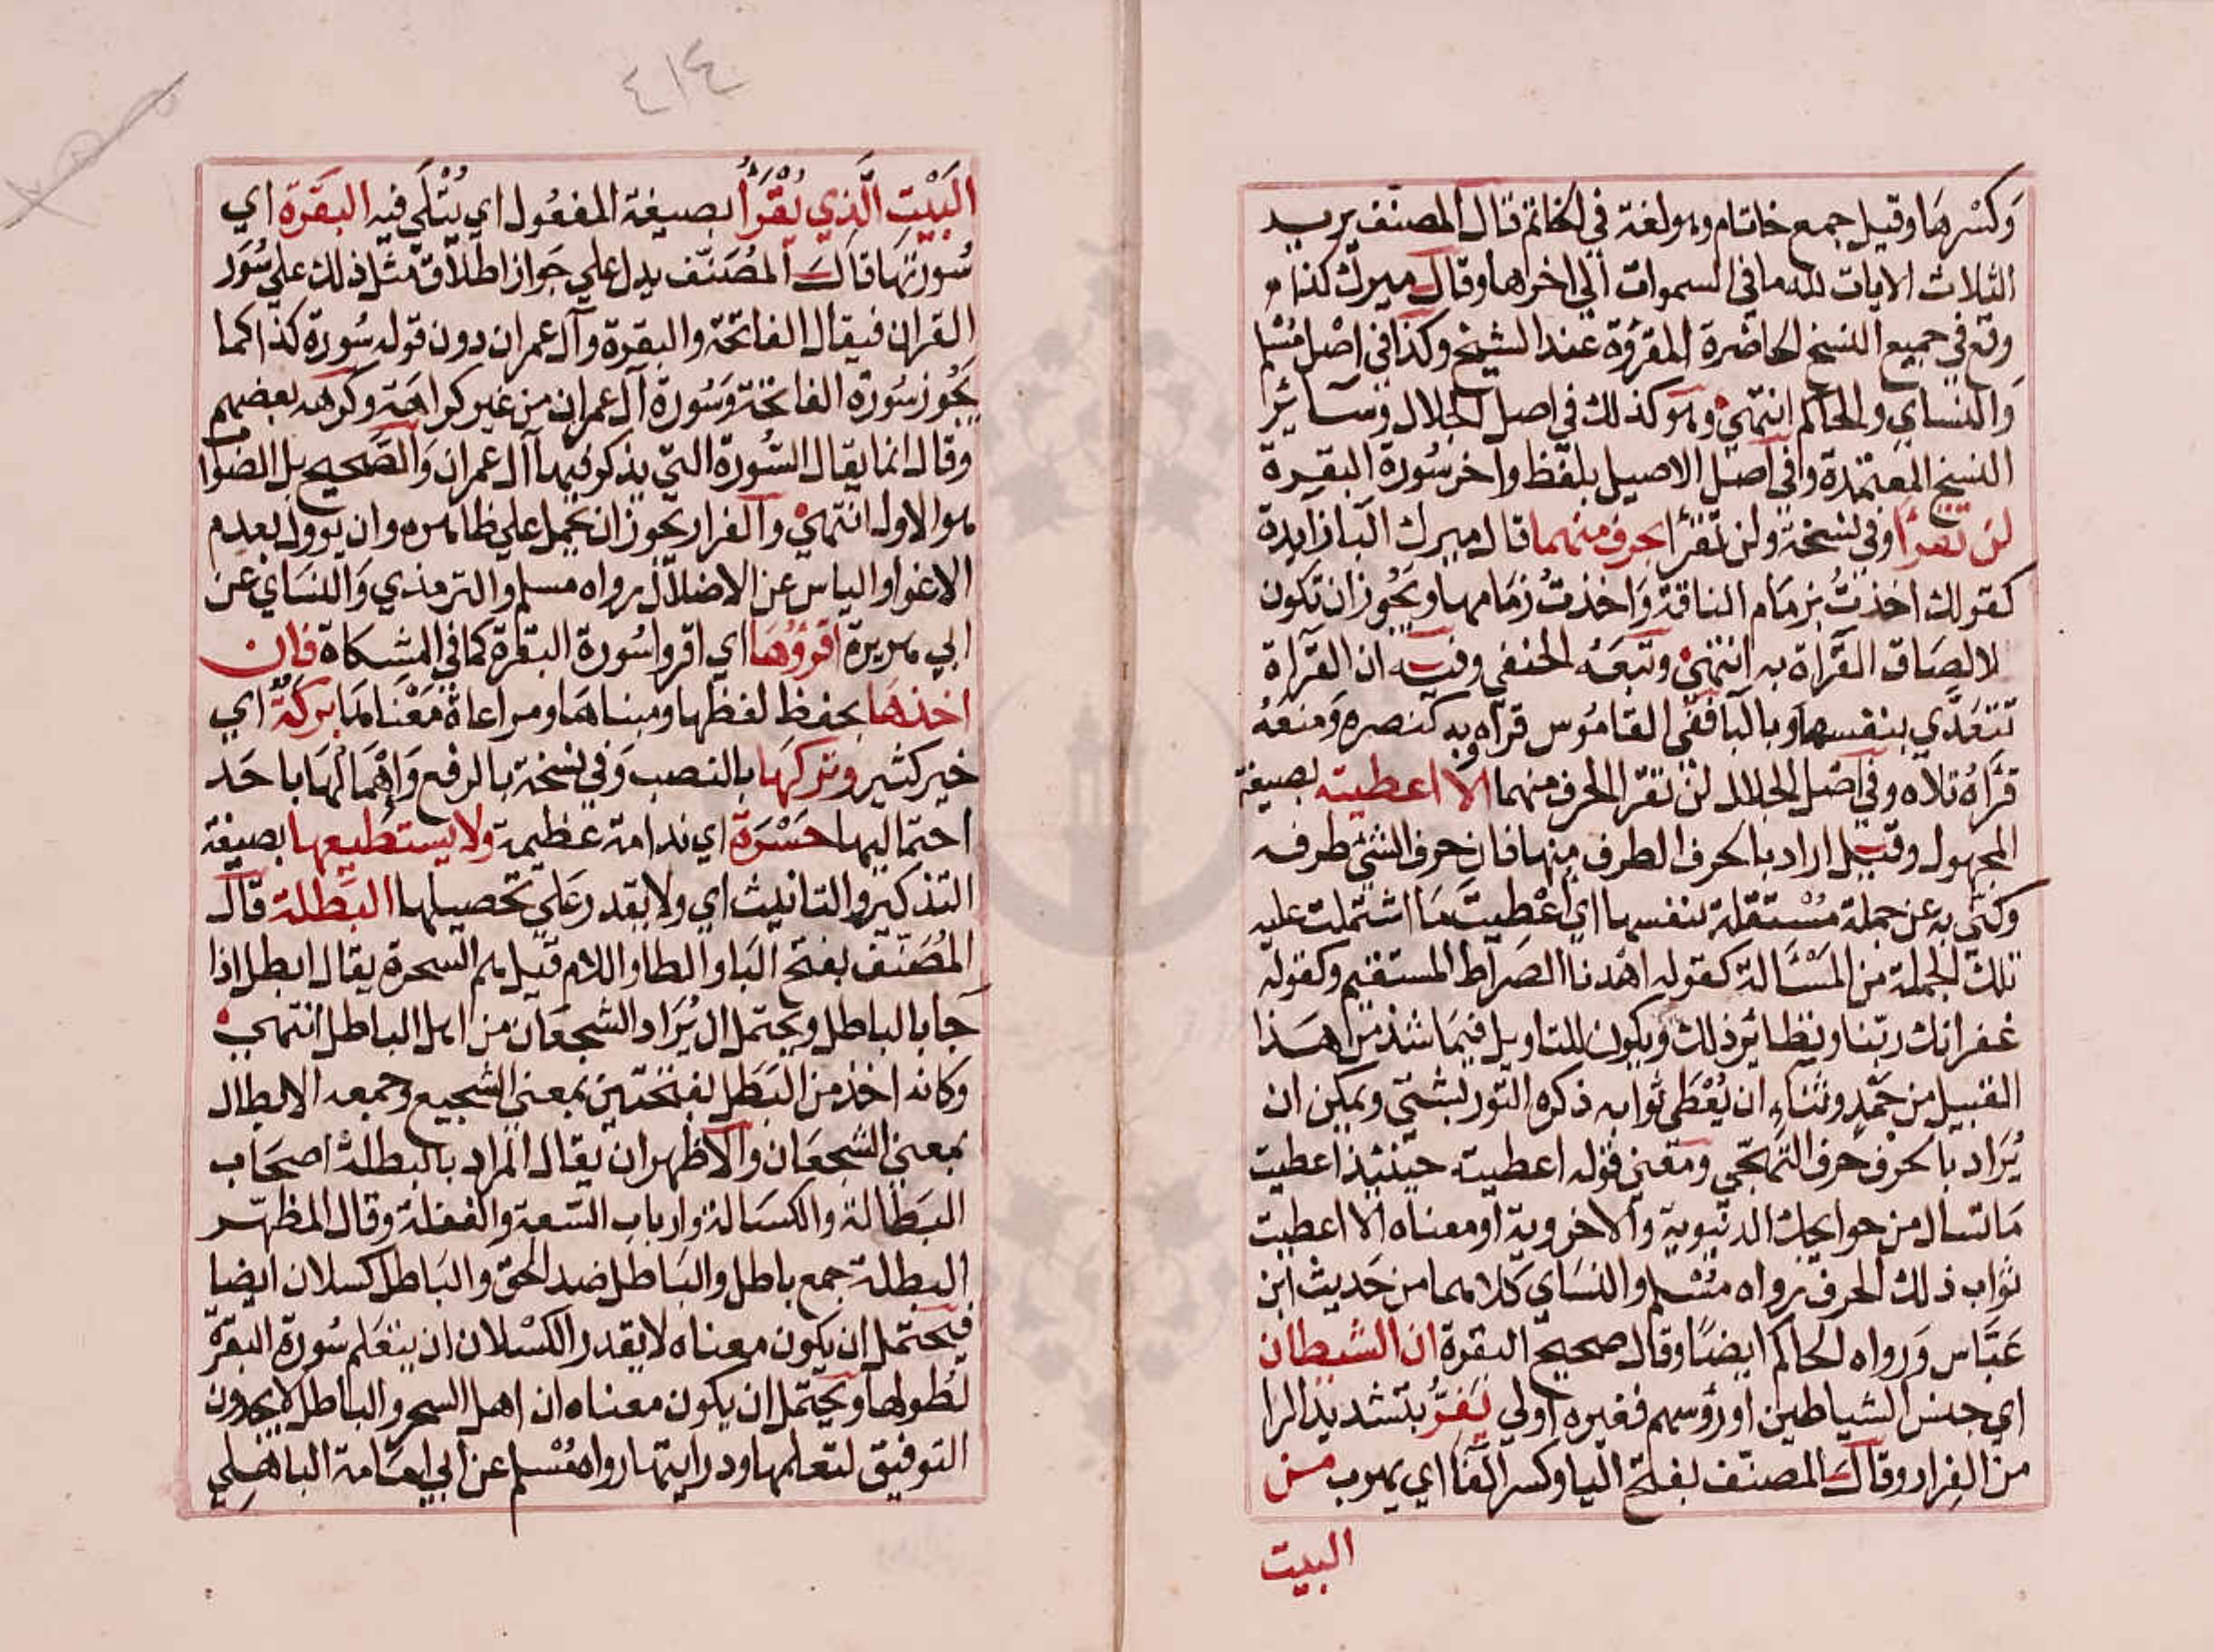 وَكسْرهَا وقيل جمع خاتام وهو لغة في الخاتم قال المصنف يريد
الثلاث الايات لله ما في السموات الي اخرها وقال ميرك كذا
وقع في جميع النسخ الحاضرة المقرؤة عند الشيخ وكذا في اصل مُسْلم
وَالنساي والحاكم انتهي وهو كذلك في اصل الجلال وسَآئر
النسخ المعتمدة وفي اصل الاصيل بلفظ واخر سُورة البقرة
لن تقرأ وفي نسخة ولن تقرأ بحرف منهما قال ميرك البا زايدة
كقولك اخذتُ بزمَام الناقة وَاخذتُ زمَامها ويَجُوز ان تكون
لالصَاق القَراة به انتهيْ وتبعَهُ الحنفي وفيه ان القَرآة
تتعَدَّي بنفسها وبالبا ففي القامُوس قرآه وبه كنصره وَمنعَهُ
قرَأهُ تلاه وفي اصْل الجلال لن تقرا الحرف منهما الا اعطيته بصيغة
المجهول وقيل اراد بالحرف الطرف منها فان حرف الشئ طرفه
وكنَّي به عن جملة مُسْتقلة بنفسها اي اعْطيتَ مَا اشتملت عليه
تلك الجملة من المسْئالة كقوله اهْدنا الصَراط المستقيم وكقوله
غفرانك ربّنا ونظائر ذلك ويكون للتاويل فيمَا شذ من هَذا
القبيل من حَمْدٍ وثنَاءٍ ان يُعْطَي ثوابه ذكره التوربشتي ويمكن ان
يُرَاد بالحرف حرف التهجّي ومعَني قوله اعطيته حينئذ اعطيت
مَا تسال من حوايجك الدنيوية والاخروية او معناه الا اعطيت
ثواب ذلك الحرف رواه مسْلم والنسَاي كلاهما من حَديث ابن
عَبّاس وَرواه الحاكم ايضًا وقال صحيح البقرة ان الشيطان
اي جنس الشياطين او رؤسهم فغيره اولي يَفرُّ بتشديد الرا
من الفِرار وقال المصنّف بفتح اليا وكسر الفا اي يهرب من
البيت
٤١٤
البَيْتِ الَّذي يُقْرَأُ بصيغة المفعُول اي يُتْلَي فيه البقَرَة اي
سُورتها قال المُصَنّف يدل علي جَواز اطلاق مثل ذلك علي سُوَر
القران فيقال الفاتحة والبقرة وآل عمران دون قوله سُورة كذا كما
يَجُوز سُورة الفاتحة وَسُورة آل عمران من غير كراهَة وكرهه بعضهم
وقال انما يقال السُّورة التي يذكر فيها آل عمران وَالصَّحيح بل الصوا
هو الاول انتهيْ والفرار يجوز ان يحمل علي ظاهره وان يوول بعدم
الاغوا والياس عن الاضلال رواه مسلم والترمذي وَالنسَاي عن
ابي هريرة اقرؤُهَا اي اقروا سُورة البقرة كما في المشكاة فان
اخذهَا بحفظ لفظها ومبناهَا ومراعاة مَعْناهَا بركَةٌ اي
خير كثير وتركهَا بالنصب وَفي نسْخة بالرفع وَاِهْمَالهَا با حَد
احتماليها حَسْرَة اي ندامة عظيمة ولا يستطيعها بصيغة
التذكير والتانيث اي ولا يقدر عَلي تحصيلها البَطلة قال
المُصَنّف بفتح البَا والطا واللام قيل هم السحرة يقال ابطل اذا
جا بالباطل ويحتمل ال يُرَاد الشجعَان من اهل الباطل انتهي
وكانه اخذ من البَطَل بفتحَتين بمعني الشجيع وجمعه الابطال
بمعني الشجعَان والاظهر ان يقال المراد بالبطلة اصحَاب
البَطالة والكسَالة وارباب السَّعة والغفلة وقال المظهّر
البطلة جمع باطل والبَاطل ضد الحق والبَاطل كسلان ايضا
فيحتمل ان يكون معناه لا يقدر الكسْلان ان يتعَلم سُورة البقرة
لطُولها ويحتمل ان يكون معناه ان اهل السحر والباطل لا يجدون
التوفيق لتعَلمها ودرايتها رواه مُسْلم عن ابي امامَة الباهلي